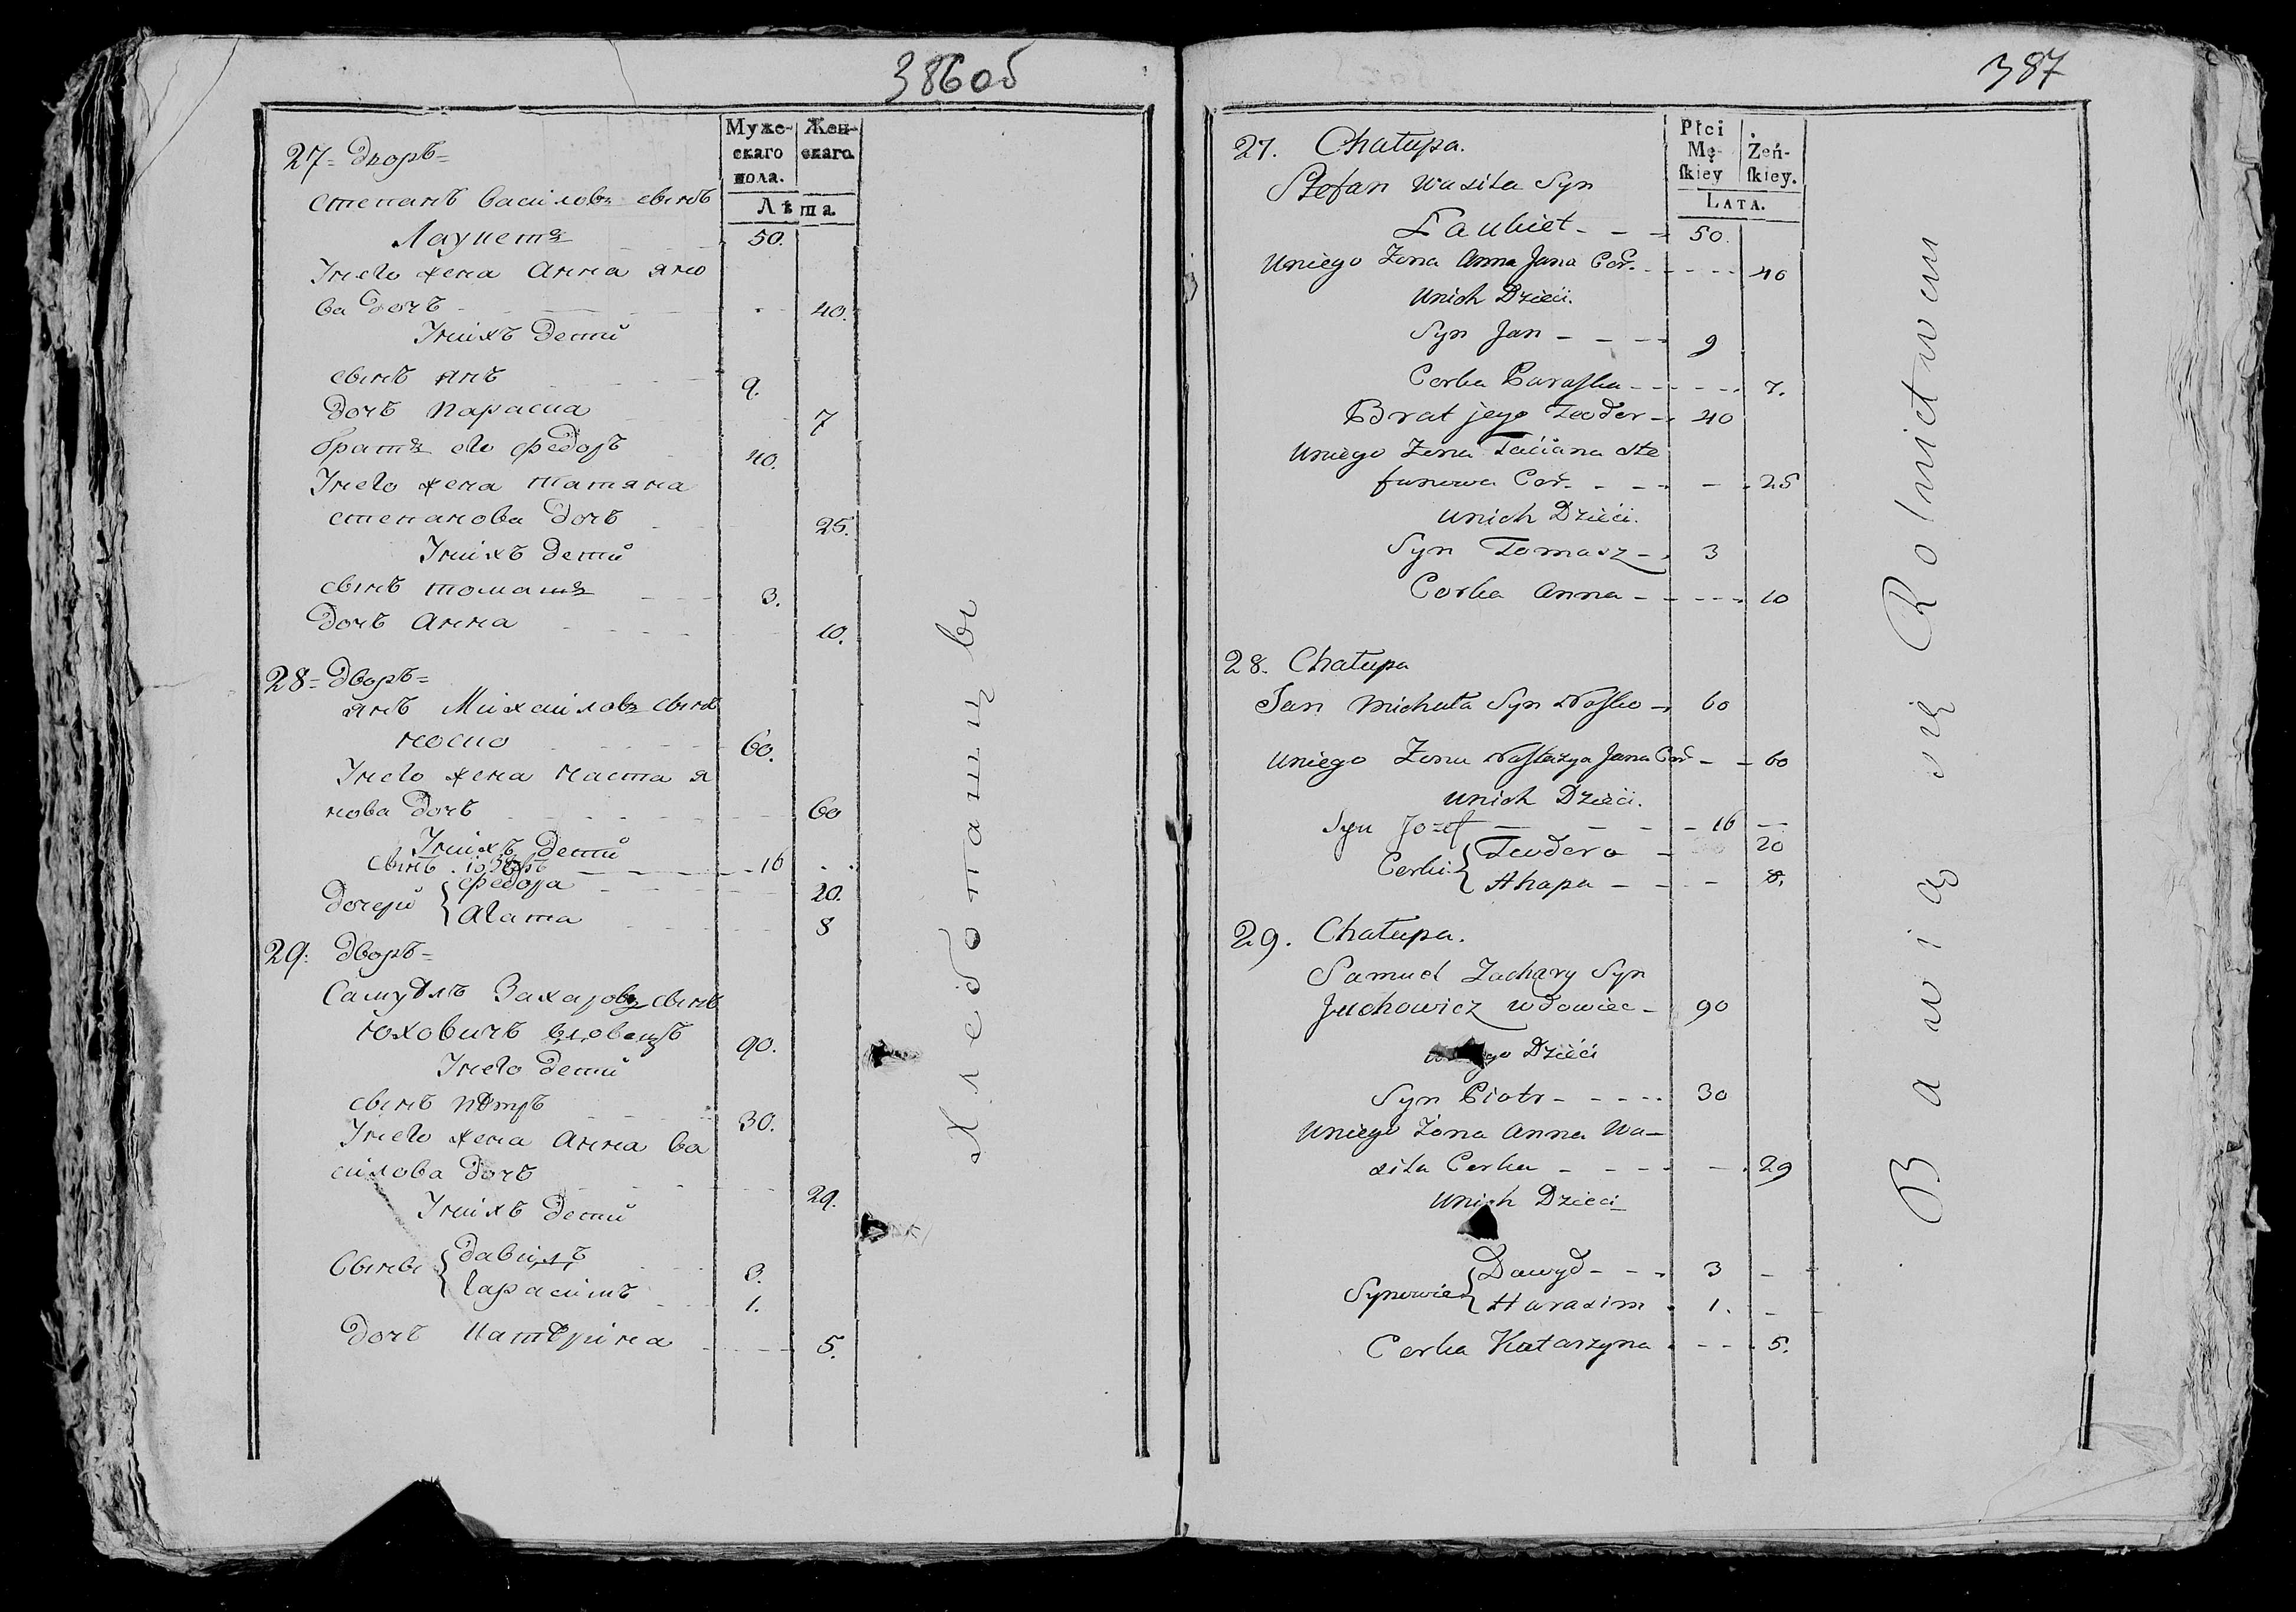 386об
Муже-
скаго
пола.
Жен-
скаго.
Лѣта.
27 = Дворъ =
степанъ василовъ сынъ
Лаукетъ 50.
Унего жена Анна яно
ва дочъ 40.
Унихъ дети
сынъ янъ 9.
дочъ параска 7
братъ его федоръ 40.
Унего жена татяна
степанова дочъ 25.
Унихъ дети
сынъ томашъ 3.
дочъ Анна 10.
28 = дворъ =
янъ Михаиловъ сынъ
носко 60.
Унего жена наста я
нова дочъ 60
Унихъ дети
сынъ іозефъ 16
дочери { федора 20.
Агата 8
29: дворъ =
Самуэлъ Захаровъ сынъ
юховичъ вдовецъ 90.
Унего дети
сынъ пѣтръ 30.
Унего жена Анна ва
силова дочъ 29.
Унихъ дети
Сыны { давидъ 3.
гарасимъ 1.
дочъ катѣрина 5.
Хлебопашцы
387
Płci
Mę-
ſkiey
Żeń-
ſkiey.
LATA.
27. Chałupa.
Stefan Wasila Syn
Laukiet - - - 50.
Uniego Żona Anna Jana Cór. - - - - 40
Unich Dzieci.
Syn Jan - - - - 9
Corka Paraſka - - - - - 7.
Brat jego Teodor - 40
Uniego Żona Taciana Ste
fanowa Cór. - - - - 25
Unich Dzieci.
Syn Tomasz - - 3
Corka Anna - - - - - 10
28. Chałupa
Jan Michała Syn Noſko - 60
Uniego Żona Naſtazya Jana Cór - - 60
Unich Dzieci.
Syn Jozef - - - - 16 -
Corki { Teodora - 20
Ahapa - - - 8.
29. Chałupa.
Samuel Zachary Syn
Juchowicz wdowiec - 90
Dzieci
Syn Piotr - - - - - 30
Uniego Żona Anna Wa-
sila Corka - - - - - 29
Unich Dzieci
Synowie { Dawyd - - - 3 -
Harasim - 1. -
Corka Katarzyna - - - - 5.
Bawią się Rolnictwem